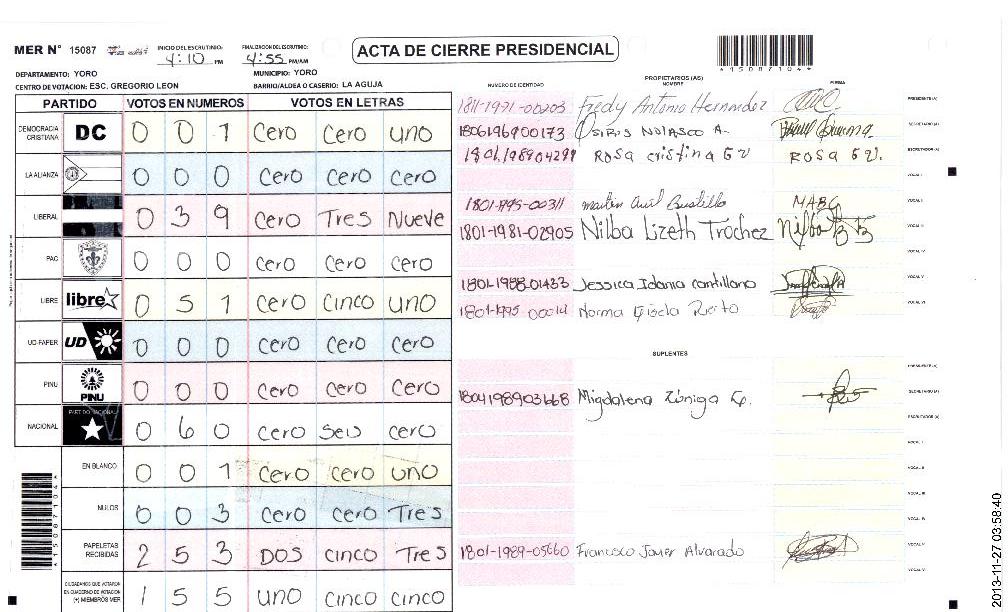 MER N° 15087
INICIO DEL ESCRUTINIO: 4:10 PM
FINALIZACION DEL ESCRUTINIO: 4:55 PM/AM
ACTA DE CIERRE PRESIDENCIAL
*15087104*
DEPARTAMENTO: YORO
MUNICIPIO: YORO
CENTRO DE VOTACION: ESC. GREGORIO LEON
BARRIO/ALDEA O CASERIO: LA AGUJA
PARTIDO VOTOS EN NUMEROS VOTOS EN LETRAS
DEMOCRACIA CRISTIANA DC 0 0 1 Cero Cero uno
LA ALIANZA 0 0 0 Cero Cero Cero
LIBERAL 0 3 9 Cero Tres Nueve
PAC 0 0 0 Cero Cero Cero
LIBRE libre 0 5 1 Cero Cinco uno
UD-FAPER UD 0 0 0 Cero Cero Cero
PINU PINU 0 0 0 Cero Cero Cero
NACIONAL PARTIDO NACIONAL 0 6 0 Cero Seis cero
EN BLANCO 0 0 1 Cero cero uno
NULOS 0 0 3 Cero cero Tres
PAPELETAS RECIBIDAS 2 5 3 DOS cinco Tres
CIUDADANOS QUE VOTARON EN CUADERNO DE VOTACION (+) MIEMBROS MER 1 5 5 uno cinco cinco
*15087104*
PROPIETARIOS (AS)
NUMERO DE IDENTIDAD NOMBRE FIRMA
1811-1971-00203 Fredy Antonio Hernandez PRESIDENTE (A)
1806196900173 Osiris Nolasco A. SECRETARIO (A)
1801.198904299 Rosa cristina G v ROSA G v. ESCRUTADOR (A)
VOCAL I
1801-1995-00311 MABG VOCAL II
1801-1981-02905 Nilba Lizeth Trochez VOCAL III
VOCAL IV
1801-1988-01433 Jessica Idania cantillano VOCAL V
1801-1995-00014 Norma Gisela VOCAL VI
SUPLENTES
PRESIDENTE (A)
1804198903668 Migdalena Zúniga SECRETARIO (A)
ESCRUTADOR (A)
VOCAL I
VOCAL II
VOCAL III
VOCAL IV
1801-1989-05660 Francisco Javier Alvarado VOCAL V
VOCAL VI
2013-11-27 03:58:40